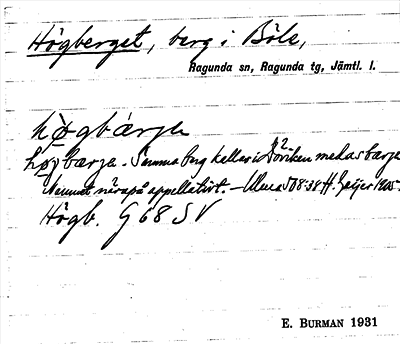 Högberget, berg i Böle,
Ragunda sn, Ragunda tg, Jämtl. l.
högbärjə
høgbærjə. Samma berg kallas i Döviken medasbærjə
Namnet närapå appellativt. — 508:38 H. Geijer 1905.
Högb. G 68 SV
E. BURMAN 1931